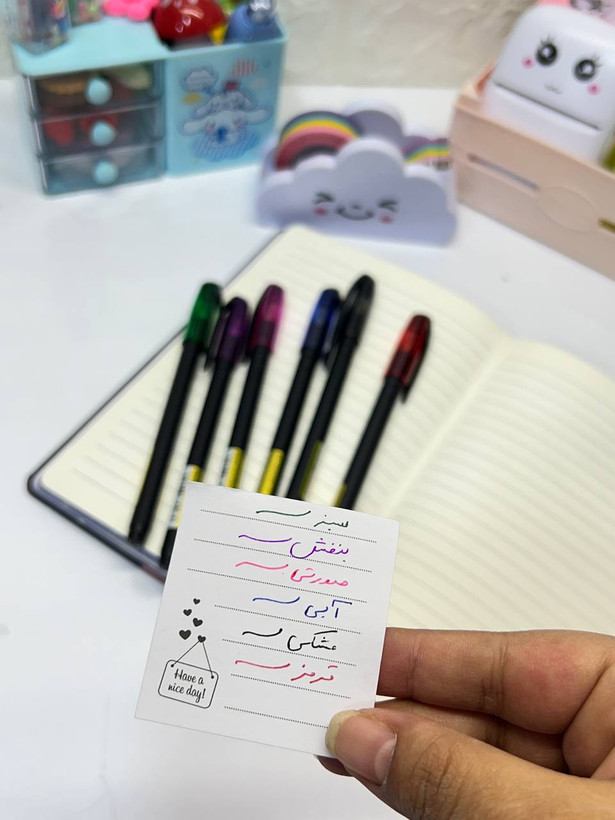 سبز
بنفش
صورتی
آبی
مشکی
قرمز
Have a
nice day!